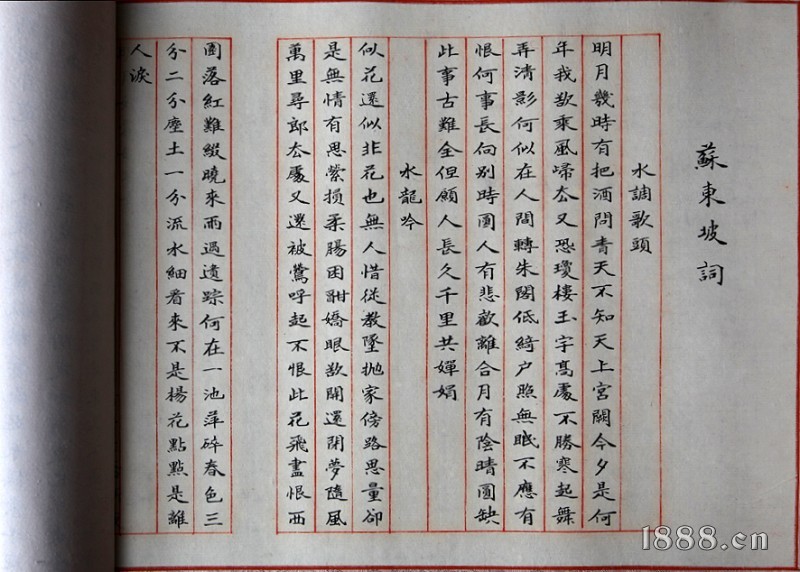 蘇東坡詞
水調歌頭
明月幾時有把酒問青天不知天上宮闕今夕是何
年我欲乘風歸去又恐瓊樓玉宇高處不勝寒起舞
弄清影何似在人間轉朱閣低綺户照無眠不應有
恨何事長向別時圓人有悲歡離合月有陰晴圓缺
此事古難全但願人長久千里共嬋娟
水龍吟
似花還似非花也無人惜從教墜拋家傍路思量卻
是無情有思縈損柔腸困酣嬌眼欲開還閉夢隨風
萬里尋郎去處又還被鶯呼起不恨此花飛盡恨西
園落紅難綴曉來雨過遺踪何在一池萍碎春色三
分二分塵土一分流水細看來不是楊花點點是離
人淚
1888.cn